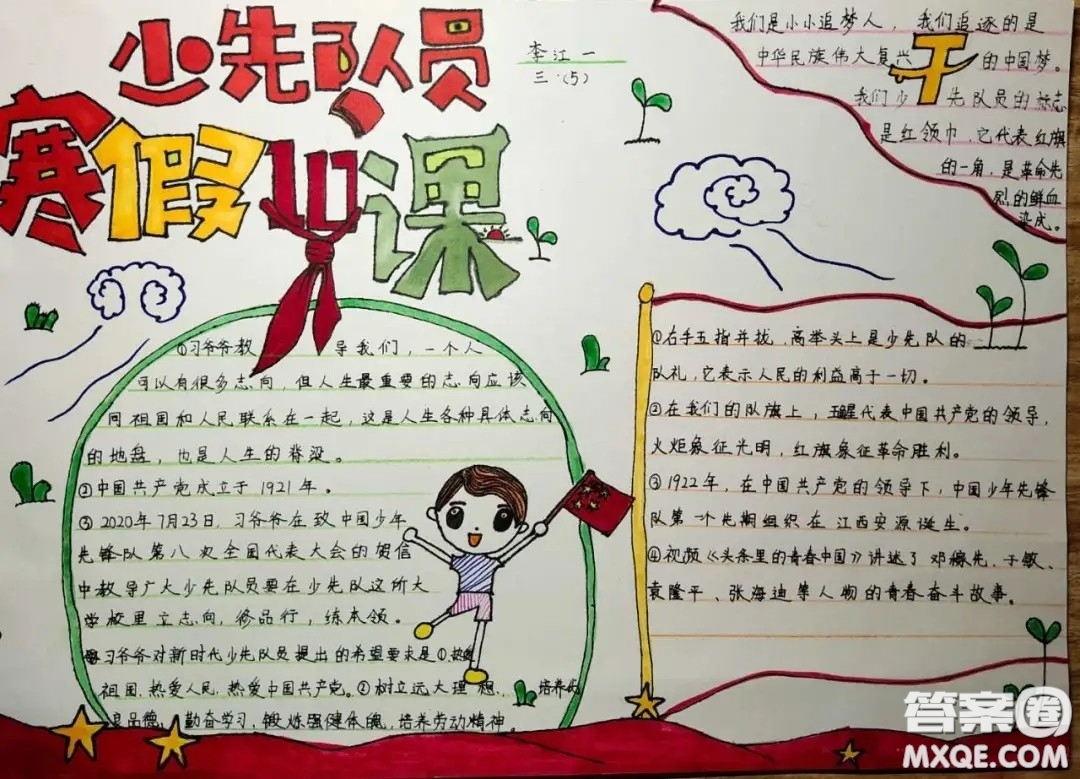 少先队员
寒假队课
李江一
三.(5)
我们是小小追梦人，我们追逐的是
中华民族伟大复兴的中国梦。
我们少先队员的标志
是红领巾，它代表红旗
的一角，是革命先
烈的鲜血
染成。
①习爷爷教导我们，一个人
可以有很多志向，但人生最重要的志向应该
同祖国和人民联系在一起，这是人生各种具体志向
的地盘，也是人生的脊梁。
②中国共产党成立于1921年。
③2020年7月23日，习爷爷在致中国少年
先锋队第八次全国代表大会的贺信
中教导广大少先队员要在少先队这所大
学校里立志向，修品行，练本领。
习爷爷对新时代少先队员提出的希望要求是①.热爱
祖国.热爱人民.热爱中国共产党。②树立远大理想、培养优
良品德，勤奋学习，锻炼强健体魄，培养劳动精神。
①右手五指并拢，高举头上是少先队的
队礼，它表示人民的利益高于一切。
②在我们的队旗上，五角星代表中国共产党的领导，
火炬象征光明，红旗象征革命胜利。
③1922年，在中国共产党的领导下，中国少年先锋
队第一个先期组织在江西安源诞生。
④视频《头条里的青春中国》讲述了邓稼先、于敏、
袁隆平、张海迪等人物的青春奋斗故事。
答案圈
MXQE.COM